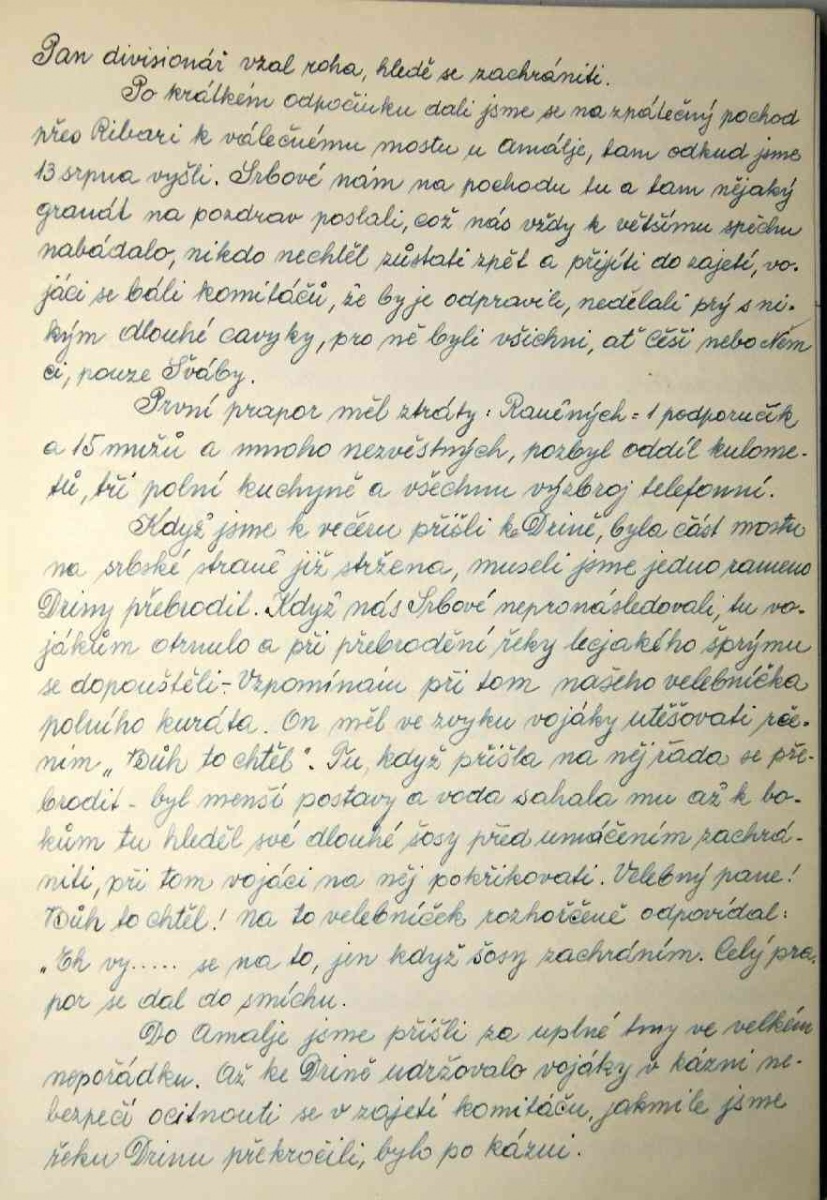 Pan divisionář vzal roha, hledě se zachrániti.
Po krátkém odpočinku dali jsme se na zpátečný pochod
přes Ribari k válečnému mostu u Amálje, tam odkud jsme
13 srpna vyšli. Srbové nám na pochodu tu a tam nějaký
granát na pozdrav poslali, což nás vždy k většímu spěchu
nabádalo, nikdo nechtěl zůstati zpět a přijíti do zajetí, vo-
jáci se báli komitáčů, že by je odpravili, nedělali prý s ni-
kým dlouhé cavyky, pro ně byli všichni, ať Češi nebo Něm
ci, pouze Šváby.
První prapor měl ztráty: Raněných = 1 podporučík
a 15 mužů a mnoho nezvěstných, pozbyl oddíl kulome-
tů, tři polní kuchyně a všechnu výzbroj telefonní.
Když jsme k večeru přišli k Drině, byla část mostu
na srbské straně již stržena, museli jsme jedno rameno
Driny přebrodit. Když nás Srbové nepronásledovali, tu vo-
jákům otrnulo a při přebrodění řeky lecjakého šprýmu
se dopouštěli - Vzpomínám při tom našeho velebníčka
polního kuráta. On měl ve zvyku vojáky utěšovati rče-
ním „Bůh to chtěl". Tu, když přišla na něj řada se pře-
brodit - byl menší postavy a voda sahala mu až k bo-
kům tu hleděl své dlouhé šosy před umáčením zachrá-
niti, při tom vojáci na něj pokřikovati. Velebný pane!
Bůh to chtěl! na to velebníček rozhořčeně odpovídal:
„Eh vy..... se na to, jen když šosy zachráním. Celý pra-
por se dal do smíchu.
Do Amalje jsme přišli za uplné tmy ve velkém
nepořádku. Až ke Drině udržovalo vojáky v kázni ne-
bezpečí ocitnouti se v zajetí komitáču, jakmile jsme
řeku Drinu překročili, bylo po kázni.